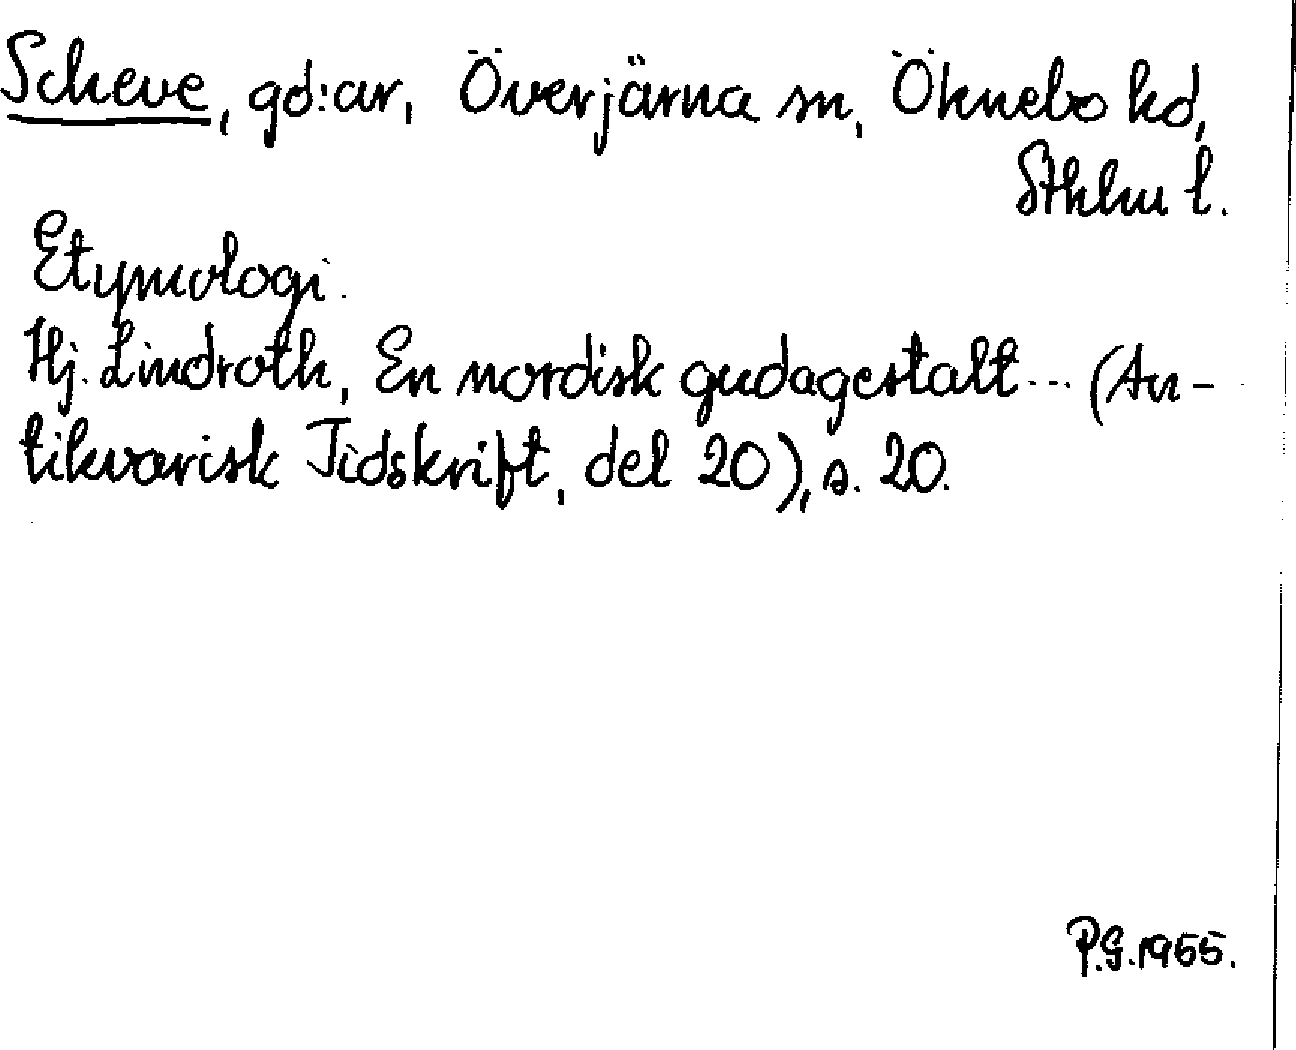 Scheve, gd:ar, Överjärna sn, Öknebo hd,
Sthlm l.
Etymologi.
Hj. Lindroth, En nordisk gudagestalt ... (An-
tikvarisk Tidskrift, del 20), s. 20.
P.G. 1955.